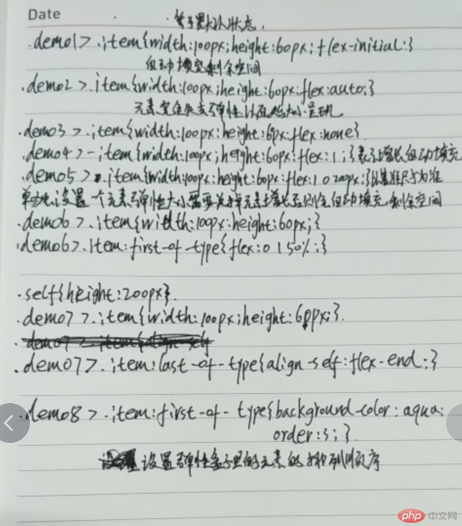 Date
等于默认状态.
.demo1>.item{width:100px;height:60px;flex-initial;}
自动填充剩余空间
.demo2>.item{width:100px;height:60px;flex:auto;}
元素完全失去弹性以原始大小呈现
.demo3>.item{width:100px;height:6px;flex:none}
.demo4>.item{width:100px;height:60px;flex:1;}表示增长自动填充
.demo5>.item{width:100px;height:60px;flex:1 0 200px;}以基准尺寸为准
单独设置一个元素弹性大小需要 元素增长否则会自动填充剩余空间
.demo6>.item{width:100px;height:60px;}
.demo6>.item:first-of-type{flex:0 1 50%;}
.self{height:200px}.
.demo7>.item{width:100px;height:60px;}.
.demo7>.item:last-of-type{align-self:flex-end;}
.demo8>.item:first-of-type{background-color:aqua;
order:3;}
设置弹性盒子里的元素的排列顺序
php 中文网